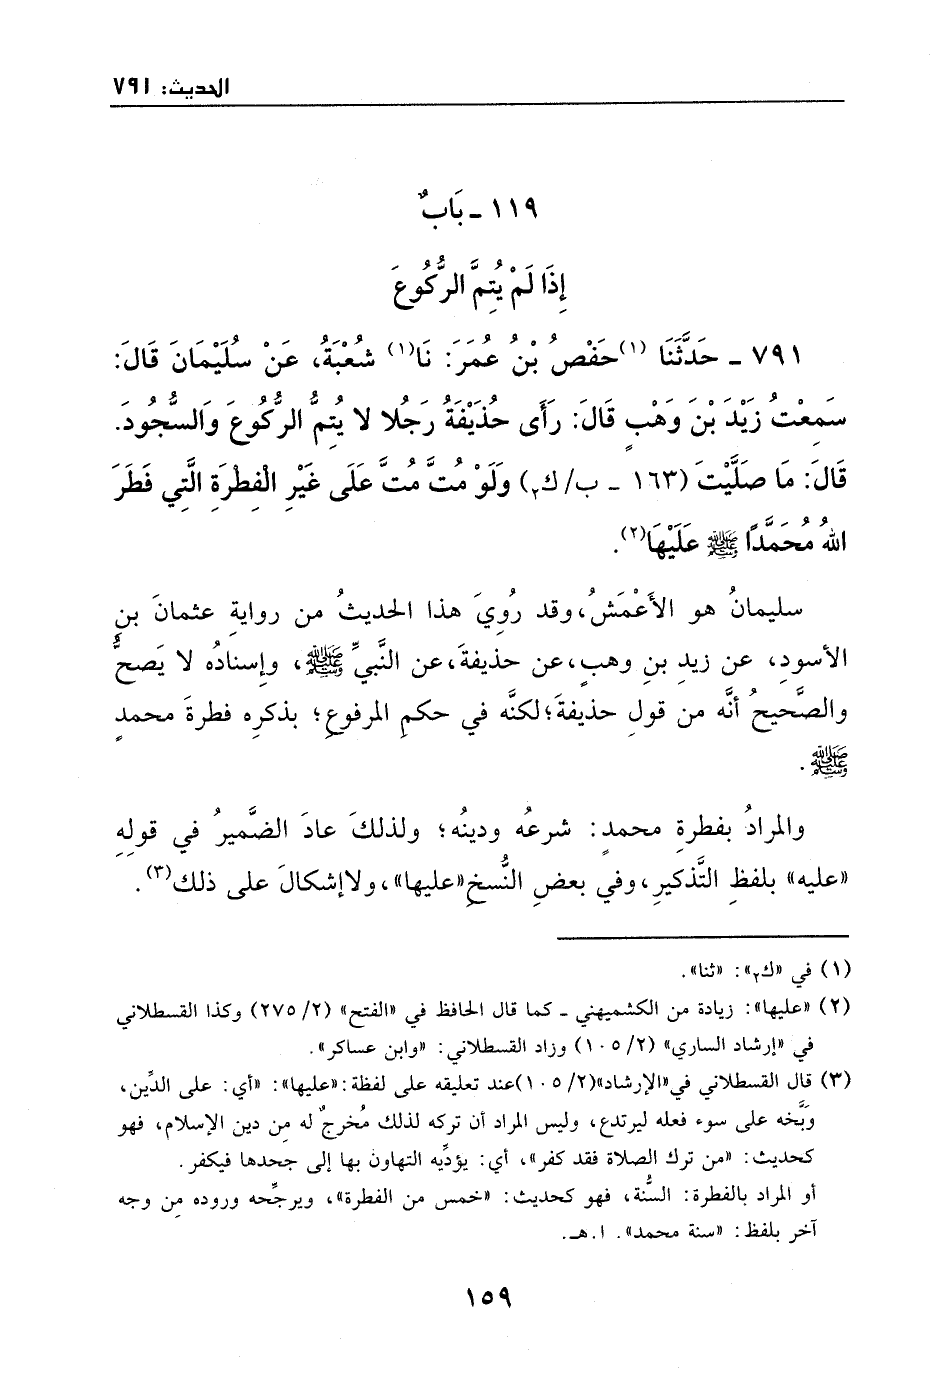 الحديث: ٧٩١
١١٩ - بَابٌ
إِذَا لَمْ يُتِمَّ الرُّكُوعَ
٧٩١ - حَدَّثَنَا (١)حَفْصُ بْنُ عُمَرَ: نَا(١) شُعْبَةُ، عَنْ سُلَيْمَانَ قَالَ:
سَمِعْتُ زَيْدَ بْنَ وَهْبٍ قَالَ: رَأَى حُذَيْفَةُ رَجُلا لا يُتِمُّ الرُّكُوعَ وَالسُّجُودَ.
قَالَ: مَا صَلَّيْتَ (١٦٣ - ب/ك٢) وَلَوْ مُتَّ مُتَّ عَلَى غَيْرِ الْفِطْرَةِ الَّتِي فَطَرَ
اللهُ مُحَمَّدًا ﷺ عَلَيْهَا(٢).
سليمانُ هو الأَعْمَشُ، وقد رُوِيَ هذا الحديثُ من روايةِ عثمانَ بنِ
الأسودِ، عن زيدِ بنِ وهبٍ، عن حذيفةَ، عن النَّبيِّ ﷺ، وإسنادُه لا يَصحُّ
والصَّحيحُ أنَّه من قولِ حذيفةَ؛ لكنَّه في حكمِ المرفوعِ؛ بذكرِه فطرةَ محمدٍ
ﷺ.
والمرادُ بفطرةِ محمدٍ: شرعُه ودينُه؛ ولذلكَ عادَ الضَّميرُ في قولِهِ
«عليه» بلفظِ التَّذكيرِ، وفي بعضِ النُّسخِ «عليها»، ولاإشكالَ على ذلك(٣).
(١) في «ك٢»: «ثنا».
(٢) «عليها»: زيادة من الكشميهني - كما قال الحافظ في «الفتح» (٢/ ٢٧٥) وكذا القسطلاني
في «إرشاد الساري» (٢/ ١٠٥) وزاد القسطلاني: «وابن عساكر».
(٣) قال القسطلاني في «الإرشاد»(٢/ ١٠٥)عند تعليقه على لفظة: «عليها»: «أي: على الدِّين،
وَبَّخه على سوء فعله ليرتدع، وليس المراد أن تركه لذلك مُخرجٌ له مِن دين الإسلام، فهو
كحديث: «من ترك الصلاة فقد كفر»، أي: يؤدِّيه التهاون بها إلى جحدها فيكفر.
أو المراد بالفطرة: السُّنة، فهو كحديث: «خمس من الفطرة»، ويرجِّحه وروده مِن وجه
آخر بلفظ: «سنة محمد». ا.هـ.
١٥٩